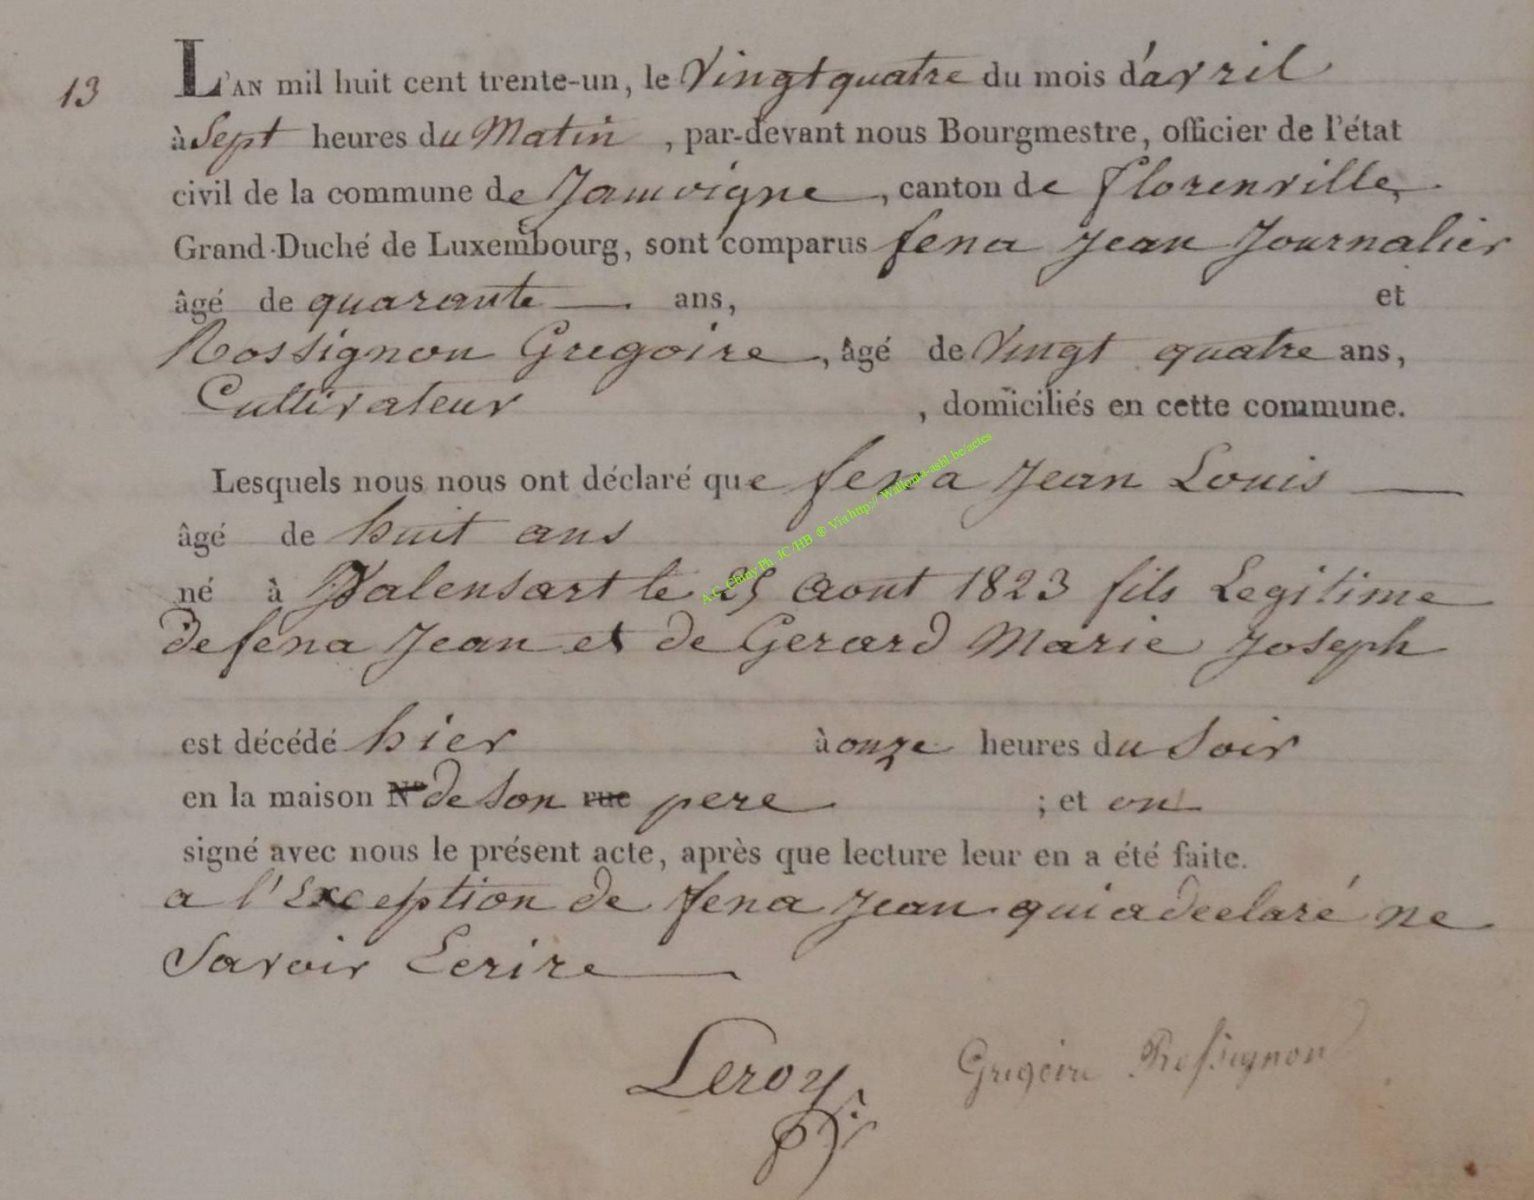 13
L'AN mil huit cent trente-un, le Vingt quatre du mois d'avril
à Sept heures du Matin , par-devant nous Bourgmestre, officier de l'état
civil de la commune de Jamoigne , canton de florenville,
Grand-Duché de Luxembourg, sont comparus fena Jean Journalier
âgé de quarante ans, et
Rossignon Gregoire , âgé de Vingt quatre ans,
Cultivateur , domiciliés en cette commune.
Lesquels nous nous ont déclaré que fena Jean Louis
âgé de huit ans
né à Valensart le 25 Aout 1823 fils Legitime
de fena Jean et de Gerard Marie Joseph
est décédé hier à onze heures du Soir
en la maison N° de son rue pere ; et ont
signé avec nous le présent acte, après que lecture leur en a été faite.
a l'Exception de fena Jean qui a declaré ne
Savoir Ecrire
Leroy
Grégoire Rossignon
A.C. Chiny Ph. JC/HB ® Via http:// Wallonia-asbl.be/actes